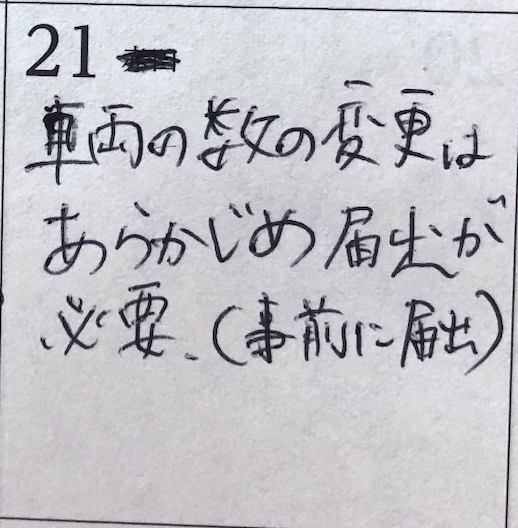 21
車両の数の変更は
あらかじめ届出が
必要.(事前に届出)